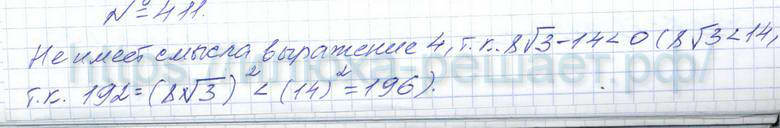 № 411.
Не имеет смысла выражение 4, т.к. 8√3-14<0 (8√3<14,
т.к. 192=(8√3)²<(14)²=196).